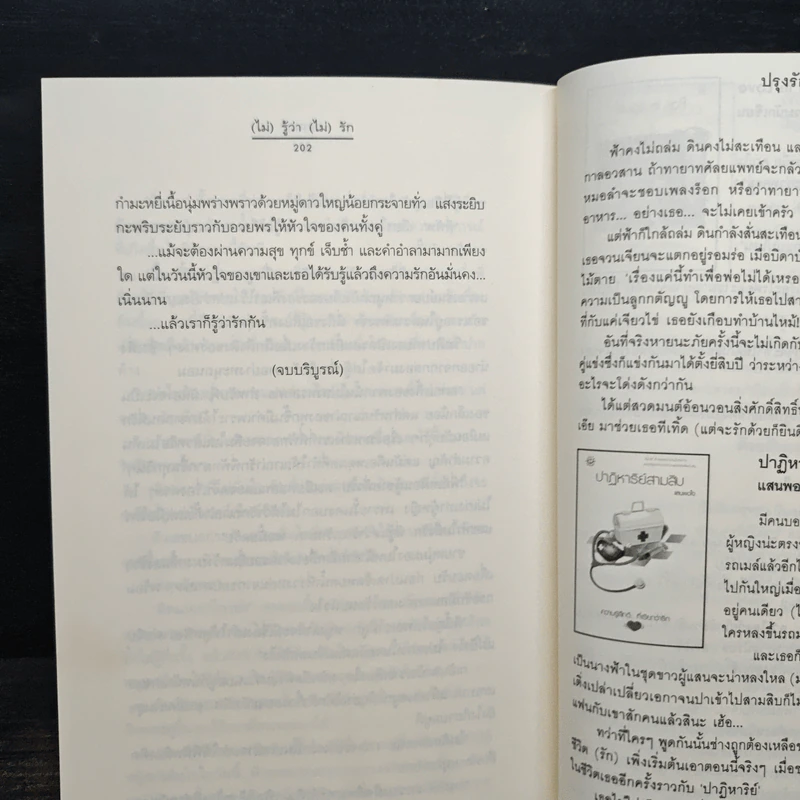 (ไม่) รู้ว่า (ไม่) รัก
202
กำมะหยี่เนื้อนุ่มพร่างพราวด้วยหมู่ดาวใหญ่น้อยกระจายทั่ว แสงระยิบ
กะพริบระยับราวกับอวยพรให้หัวใจของคนทั้งคู่
...แม้จะต้องผ่านความสุข ทุกข์ เจ็บช้ำ และคำอำลามามากเพียง
ใด แต่ในวันนี้หัวใจของเขาและเธอได้รับรู้แล้วถึงความรักอันมั่นคง...
เนิ่นนาน
...แล้วเราก็รู้ว่ารักกัน
(จบบริบูรณ์)
ปรุงรั
ฟ้าคงไม่ถล่ม ดินคงไม่สะเทือน แล
กาลอวสาน ถ้าทายาทศัลยแพทย์จะกลัว
หมอลำจะชอบเพลงร็อก หรือว่าทายา
อาหาร... อย่างเธอ... จะไม่เคยเข้าครัว
แต่ฟ้าก็ใกล้ถล่ม ดินกำลังสั่นสะเทือน
เธอจวนเจียนจะแตกอยู่รอมร่อ เมื่อบิดาบั
ไม้ตาย 'เรื่องแค่นี้ทำเพื่อพ่อไม่ได้เหรอ
ความเป็นลูกกตัญญู โดยการให้เธอไปสา
ที่กับแค่เจียวไข่ เธอยังเกือบทำบ้านไหม้!
อันที่จริงหายนะภัยครั้งนี้จะไม่เกิดกับ
คู่แข่งซึ่งก็แข่งกันมาได้ตั้งยี่สิบปี ว่าระหว่าง
อะไรจะโด่งดังกว่ากัน
ได้แต่สวดมนต์อ้อนวอนสิ่งศักดิ์สิทธิ์
เอ๊ย มาช่วยเธอทีเทิ้ด (แต่จะรักด้วยก็ยินดี
ปาฏิหาริย์สามสิบ
แสนพอใจ
ปาฏิหา
แสนพอ
มีคนบอ
ผู้หญิงน่ะตรง
รถเมล์แล้วอีกไ
ไปกันใหญ่เมื่อ
อยู่คนเดียว (ไ
ใครหลงขึ้นรถม
และเธอก็
เป็นนางฟ้าในชุดขาวผู้แสนจะน่าหลงใหล (ม
เด้งเปล่าเปลี่ยวเอกาจนปาเข้าไปสามสิบก็ไม
แฟนกับเขาสักคนแล้วสินะ เฮ้อ...
ทว่าที่ใครๆ พูดกันนั้นช่างถูกต้องเหลือ
ชีวิต (รัก) เพิ่งเริ่มต้นเอาตอนนี้จริงๆ เมื่อช
ในชีวิตเธออีกครั้งราวกับ 'ปาฏิหาริย์'